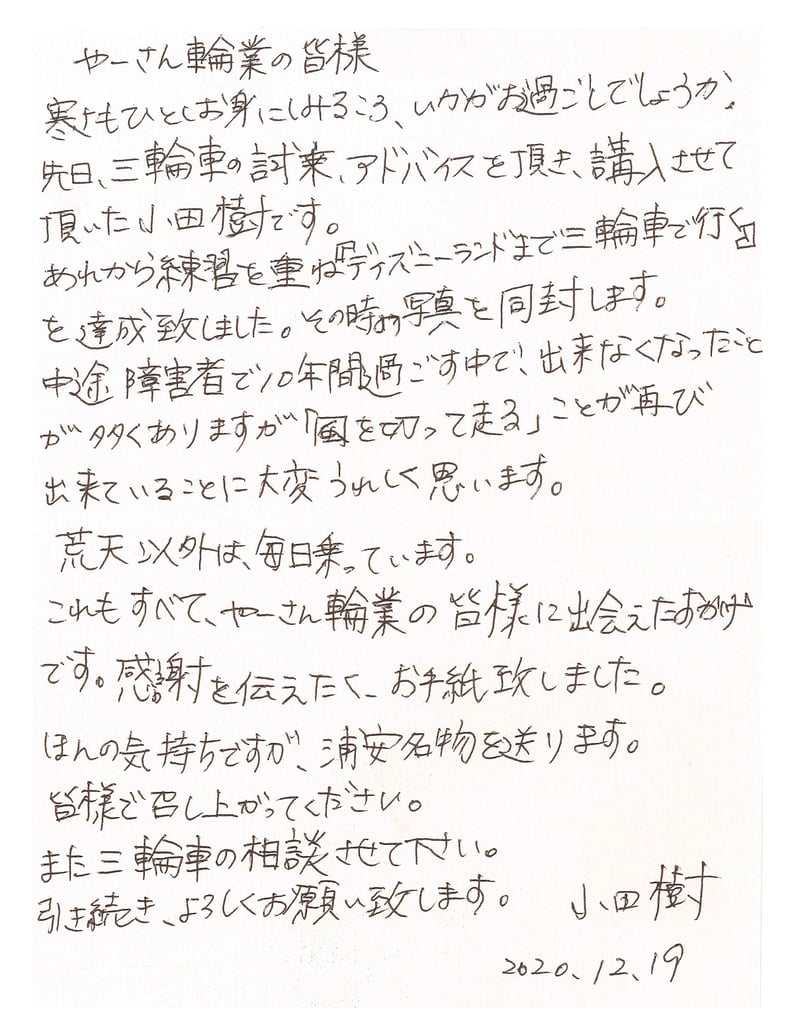 やーさん輪業の皆様
寒さもひとしお身にしみるころ、いかがお過ごしでしょうか。
先日、三輪車の試乗、アドバイスを頂き、購入させて
頂いた小田樹です。
あれから練習を重ね『ディズニーランドまで三輪車で行く』
を達成致しました。その時の写真を同封します。
中途障害者で10年間過ごす中で、出来なくなったこと
が多くありますが「風を切って走る」ことが再び
出来ていることに大変うれしく思います。
荒天以外は、毎日乗っています。
これもすべて、やーさん輪業の皆様に出会えたおかげ
です。感謝を伝えたく、お手紙致しました。
ほんの気持ちですが、浦安名物を送ります。
皆様で召し上がってください。
また三輪車の相談させて下さい。
引き続き、よろしくお願い致します。 小田樹
2020.12.19